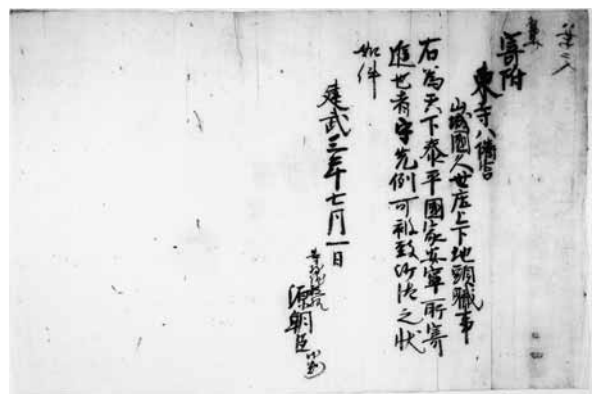 案
寄附
東寺八幡宮
山城國久世庄上下地頭職事
右為天下泰平國家安寧所寄
進也者守先例可被致沙汰之状
如件
建武三年七月一日
源朝臣